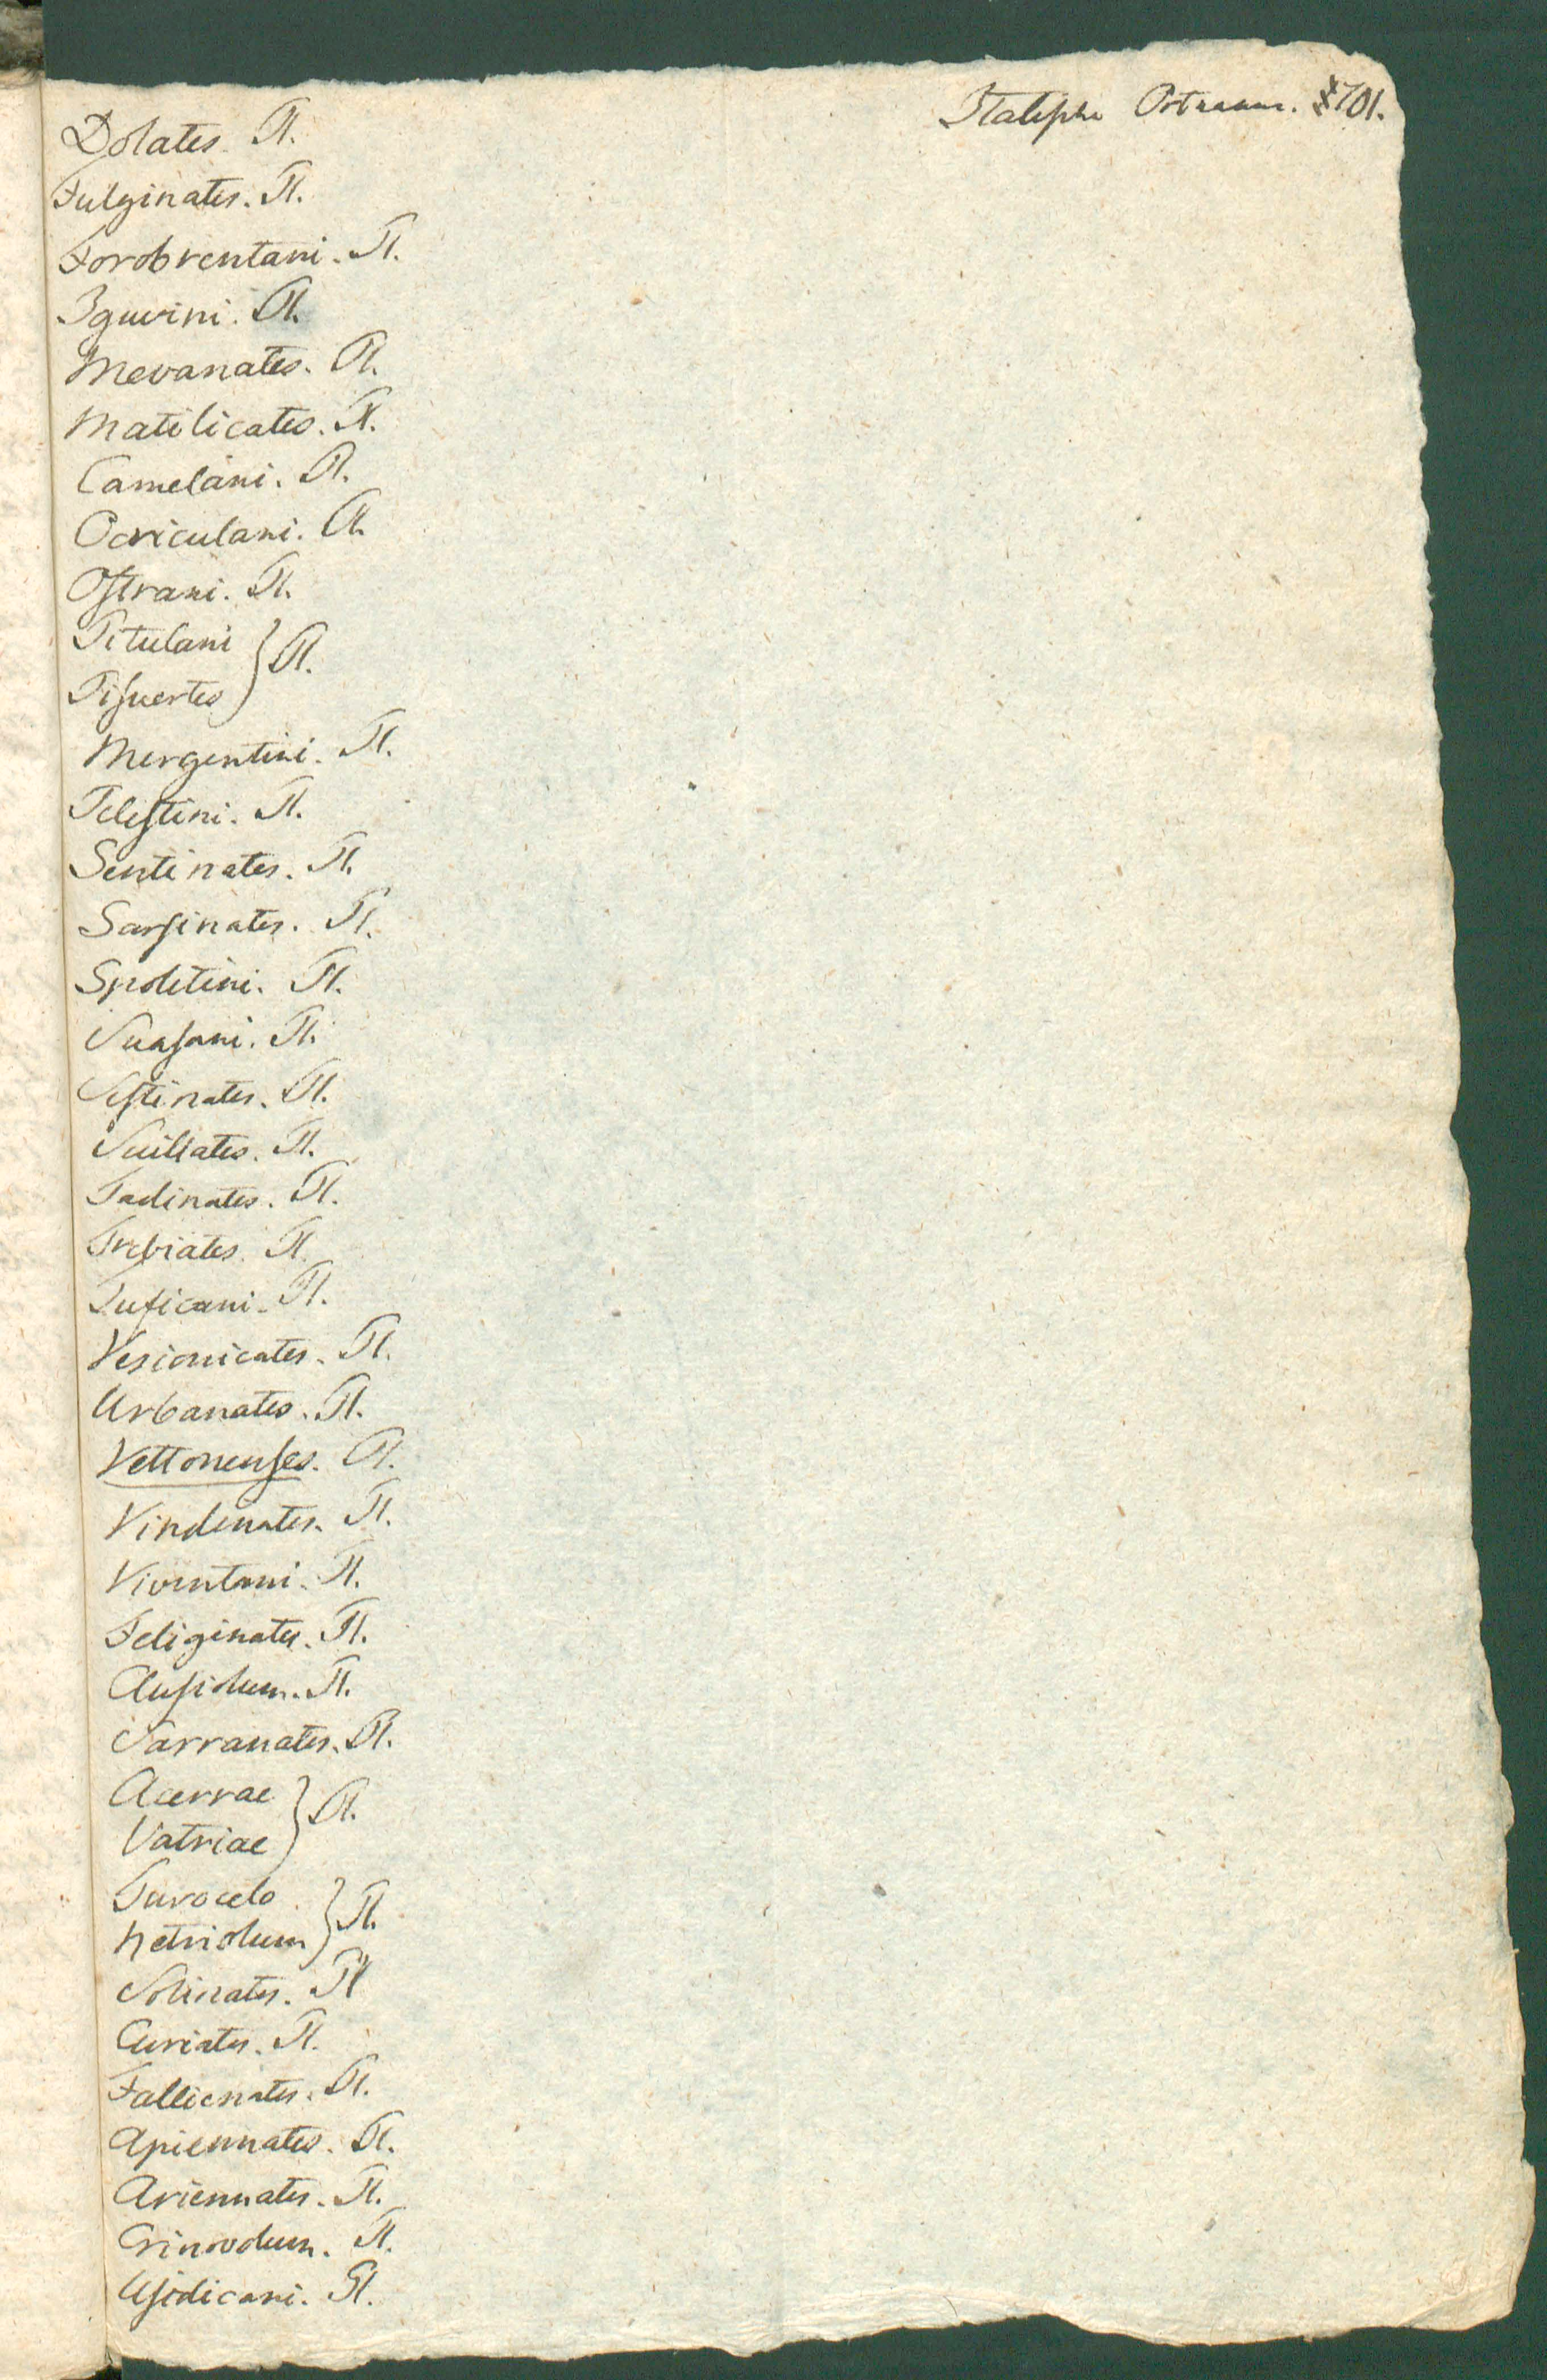 101.
Dolates. Pl.
Fulginates. Pl.
Forobrentani. Pl.
Iguvini. Pl.
Mevanates. Pl.
Matilicates. Pl.
Camelani. Pl.
Ocriculani. Pl.
Oſtrani. Pl.
Pitulani } Pl.
Piſuertes
Mergentini. Pl.
Peleſtini. Pl.
Sentinates. Pl.
Sarſinates. Pl.
Spoletini. Pl.
Suaſani. Pl.
Seſtinates. Pl.
Suillates. Pl.
Tadinates. Pl.
Trebiates. Pl.
Tuficani. Pl.
Vesionicates. Pl.
Urbanates. Pl.
Vettonenſes. Pl.
Vindenates. Pl.
Viventani. Pl.
Feliginates. Pl.
Cluſiolum. Pl.
Sarranates. Pl.
Acerrae } Pl.
Vatriae
Turocelo } Pl.
Vetriolum
Solinates. Pl.
Curiates. Pl.
Fallienates. Pl.
Apiennates. Pl.
Ariennates. Pl.
Crinovolum. Pl.
Uſidicani. Pl.